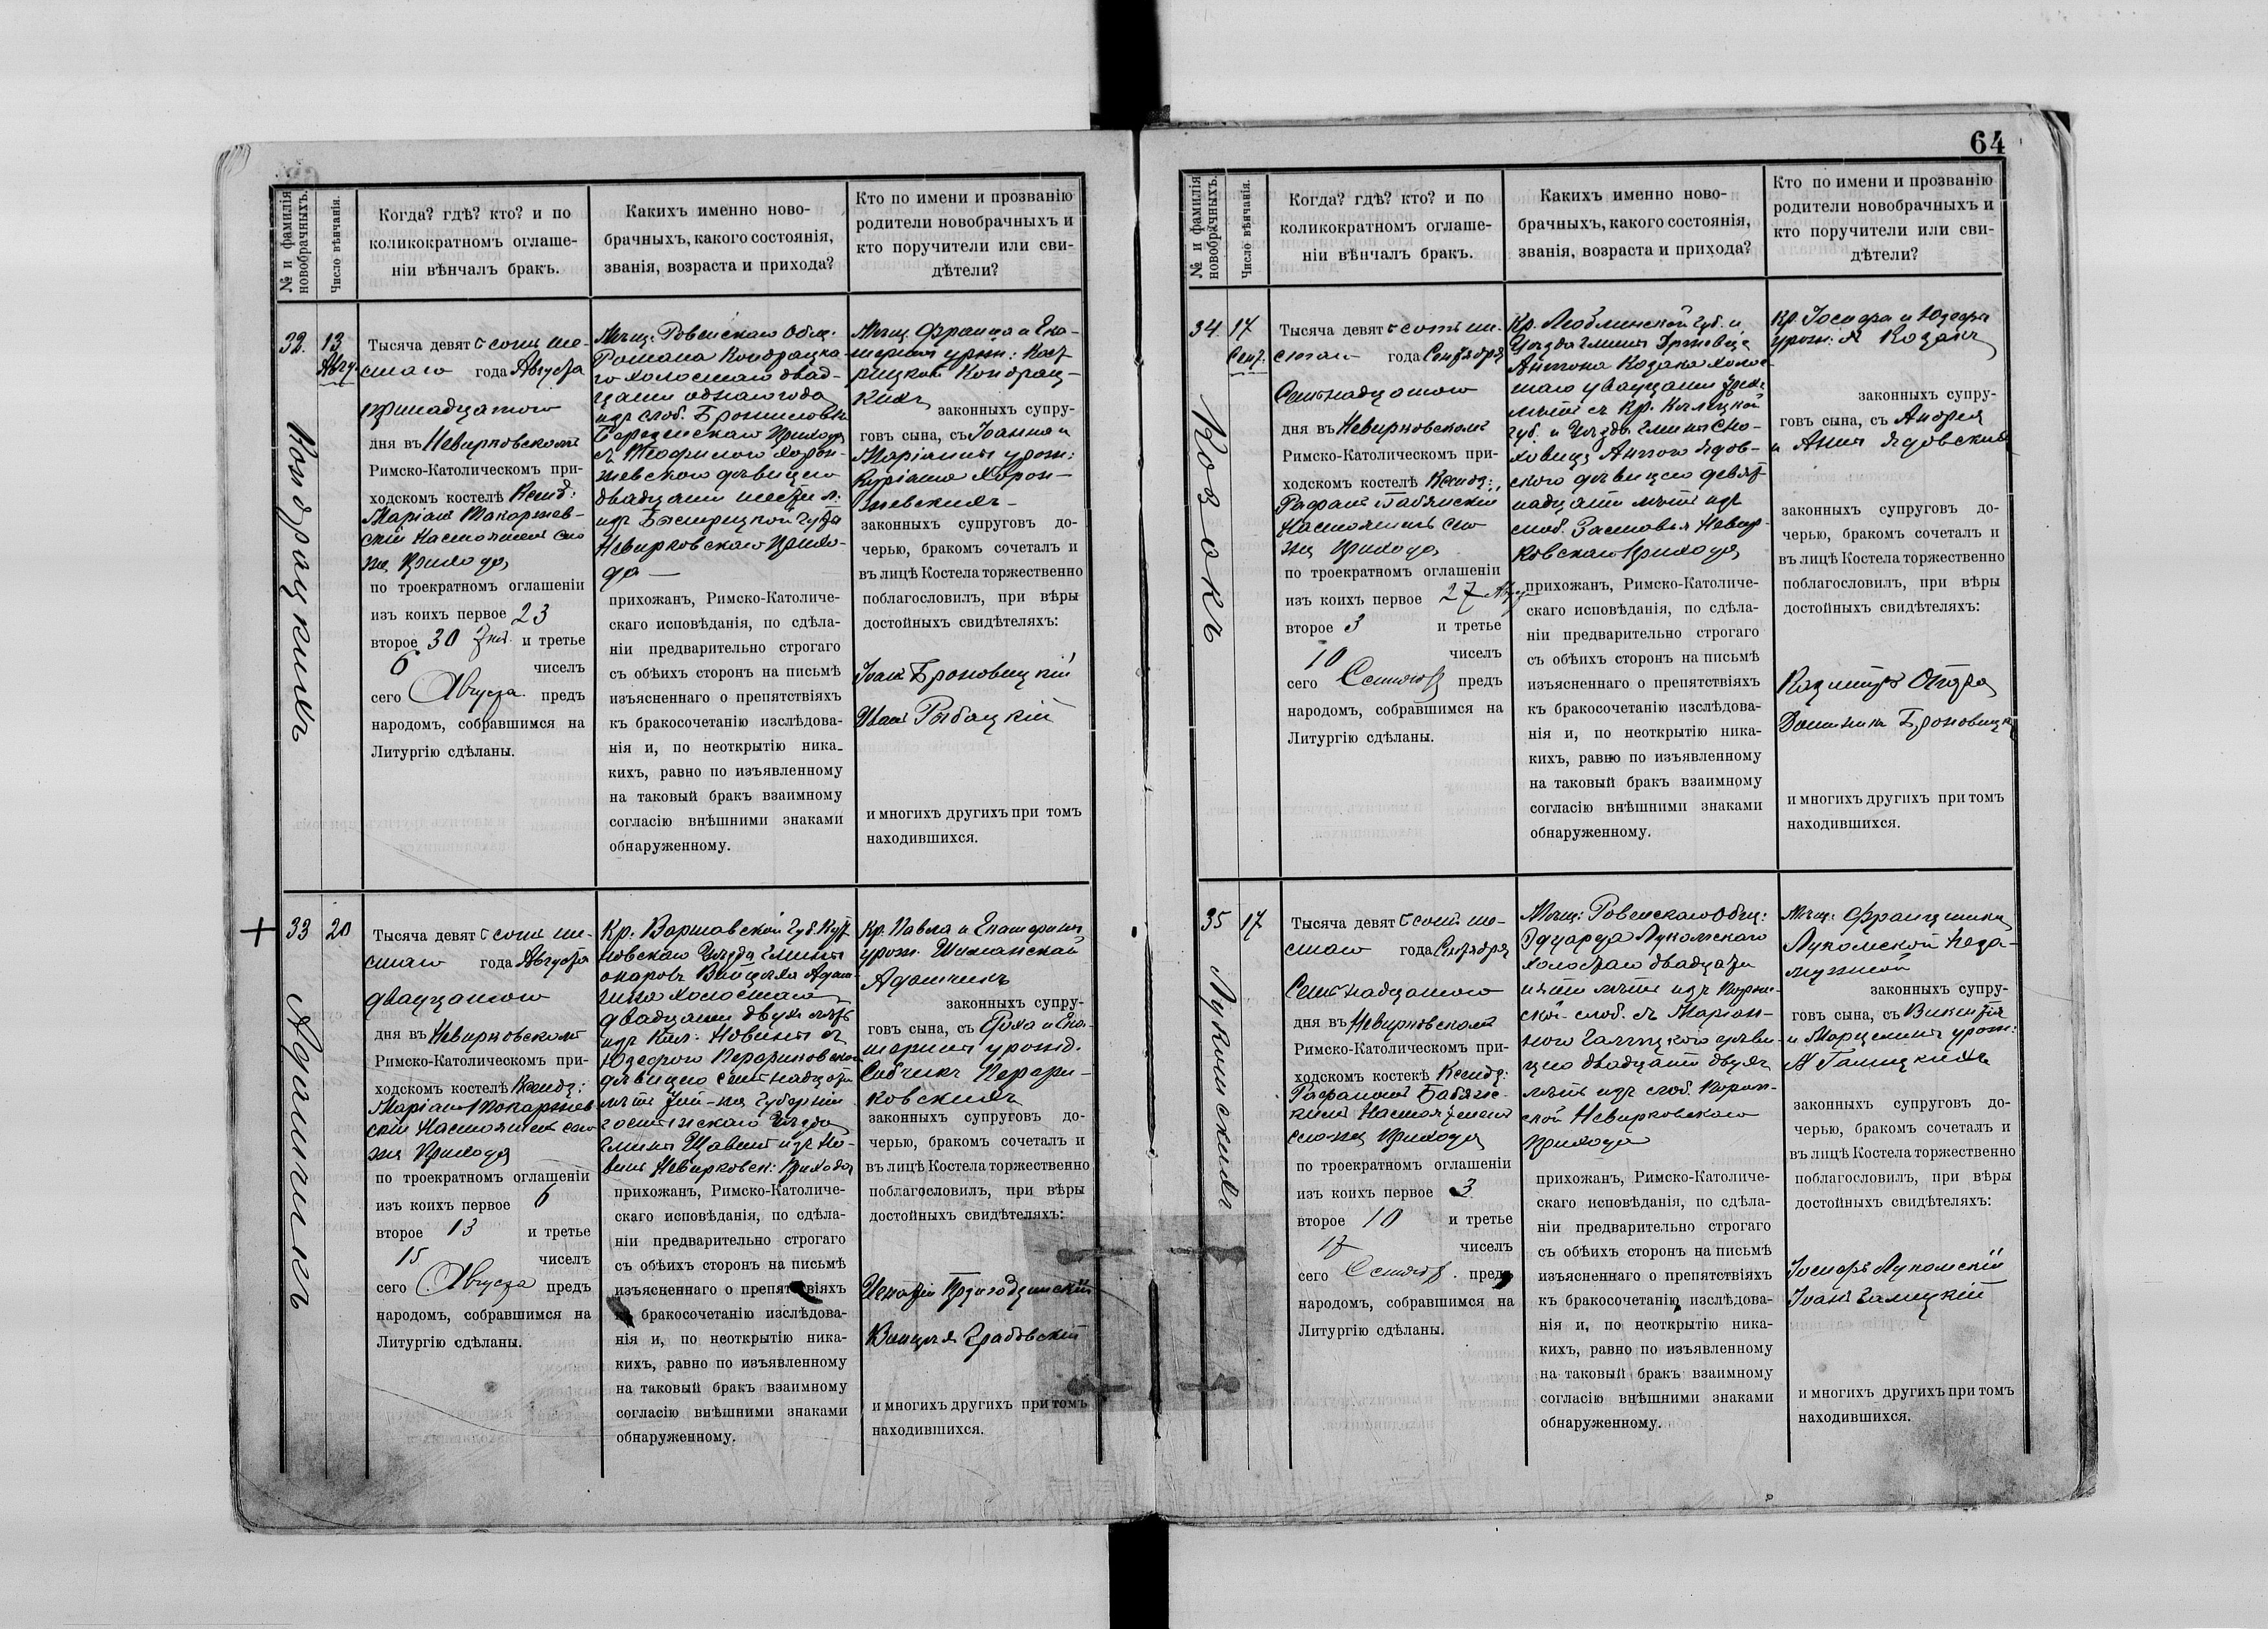 64
№ и фамилія новобрачныхъ.
Число вѣнчанія.
Когда? гдѣ? кто? и по
коликократномъ оглаше-
ніи вѣнчалъ бракъ.
Какихъ именно ново-
брачныхъ, какого состоянія,
званія, возраста и прихода?
Кто по имени и прозванію
родители новобрачныхъ и
кто поручители или сви-
дѣтели?
32.
13
Авгу.
Кондрацкихъ
Тысяча девятсотъ ше-
стаго года Августа
тринадцатого
дня въ Невирковскомъ
Римско-Католическомъ при-
ходскомъ костелѣ Ксенд:
Маріанъ Токаржев-
скій Настоятель сео
же Прихода
по троекратномъ оглашеніи
изъ коихъ первое 23
второе 30 и третье
6 чиселъ
сего Августа предъ
народомъ, собравшимся на
Литургію сдѣланы.
Мѣщ: Ровенскаго Общ:
Романа Кондрацка-
го холостаго двад-
цати одного года
изъ слоб. Брониславки
Березенскаго Прихода
съ Теофилого Хорон-
жевского дѣвицею
двадцати шести л:
изъ Быстрицкой Гуты
Невирковскаго Прихо-
да —
прихожанъ, Римско-Католиче-
скаго исповѣданія, по сдѣла-
ніи предварительно строгаго
съ обѣихъ сторонъ на письмѣ
изъясненнаго о препятствіяхъ
къ бракосочетанію изслѣдова-
нія и, по неоткрытію ника-
кихъ, равно по изъявленному
на таковый бракъ взаимному
согласію внѣшними знаками
обнаруженному.
Мѣщ. Франца и Ека-
терины урож:
Кондрац-
кихъ
законныхъ супру-
говъ сына, съ Іоанна и
Маріанны урож:
Хорон-
жевскихъ —
законныхъ супруговъ до-
черью, бракомъ сочеталъ и
въ лицѣ Костела торжественно
поблагословилъ, при вѣры
достойныхъ свидѣтеляхъ:
Іванъ Броновицкій
Иванъ Рыбацкій
и многихъ другихъ при томъ
находившихся.
33
20
Адамчикъ
Тысяча девятсотъ ше-
стаго года Августа
двадцатого
дня въ Невирковскомъ
Римско-Католическомъ при-
ходскомъ костелѣ Ксендз:
Маріанъ Токаржев
скій Настоятель сео
же Прихода
по троекратномъ оглашеніи
изъ коихъ первое 6
второе 13 и третье
15 чиселъ
сего Августа предъ
народомъ, собравшимся на
Литургію сдѣланы.
Кр. Варшавской Губ. Кут
новскаго Уѣзда Гмины
Адам-
чика холостаго
двадцати двухъ лѣтъ
изъ Кол: Новины съ
Юзефого
дѣвицею семнадцати
лѣтъ Губерніи
Гостынскаго Уѣзда
Гмины Щавинъ изъ Но-
вины Невирковск: Прихода
прихожанъ, Римско-Католиче-
скаго исповѣданія, по сдѣла-
ніи предварительно строгаго
съ обѣихъ сторонъ на письмѣ
изъясненнаго о препятствіяхъ
къ бракосочетанію изслѣдова-
нія и, по неоткрытію ника-
кихъ, равно по изъявленному
на таковый бракъ взаимному
согласію внѣшними знаками
обнаруженному.
Кр. Павла и Екатерины
урож. Шиманской
Адамчикъ
законныхъ супру-
говъ сына, съ Роха и Ека-
терины урожд.
Собчикъ
ковскихъ
законныхъ супруговъ до-
черью, бракомъ сочеталъ и
въ лицѣ Костела торжественно
поблагословилъ, при вѣры
достойныхъ свидѣтеляхъ:
Грабовскій
и многихъ другихъ при томъ
находившихся.
№ и фамилія новобрачныхъ.
Число вѣнчанія.
Когда? гдѣ? кто? и по
коликократномъ оглаше-
ніи вѣнчалъ бракъ.
Какихъ именно ново-
брачныхъ, какого состоянія,
званія, возраста и прихода?
Кто по имени и прозванію
родители новобрачныхъ и
кто поручители или сви-
дѣтели?
34
17
Сент.
Козокъ
Тысяча девятсотъ ше-
стаго года Сентября
Семнадцатого
дня въ Невирковскомъ
Римско-Католическомъ при-
ходскомъ костелѣ Ксендз:
Настоятель сео
же Прихода
по троекратномъ оглашеніи
изъ коихъ первое 27 Авгу
второе 3 и третье
10 чиселъ
сего Сентяб предъ
народомъ, собравшимся на
Литургію сдѣланы.
Кр. Люблинской Губ. и
Уѣзда Гмины
Антона Козака холос-
таго двадцати трех
лѣтъ съ Кр. Кѣлецкой
Губ. и Уѣзда Гмины Сно-
ховицъ Анного Ядов-
ского дѣвицею девят
надцати лѣтъ изъ
слоб. Заставья Невир-
ковскаго Прихода
прихожанъ, Римско-Католиче-
скаго исповѣданія, по сдѣла-
ніи предварительно строгаго
съ обѣихъ сторонъ на письмѣ
изъясненнаго о препятствіяхъ
къ бракосочетанію изслѣдова-
нія и, по неоткрытію ника-
кихъ, равно по изъявленному
на таковый бракъ взаимному
согласію внѣшними знаками
обнаруженному.
Кр. Іосифа и Юзефы
урож: Козакъ
законныхъ супру-
говъ сына, съ Андрея
и Анны Ядовскихъ
законныхъ супруговъ до-
черью, бракомъ сочеталъ и
въ лицѣ Костела торжественно
поблагословилъ, при вѣры
достойныхъ свидѣтеляхъ:
Казимиръ
Доминикъ Броновицк
и многихъ другихъ при томъ
находившихся.
35
17
Лукомскихъ
Тысяча девятсотъ ше-
стаго года Сентября
Семнадцатого
дня въ Невирковскомъ
Римско-Католическомъ при-
ходскомъ костекѣ Ксендз:
Настоятель
сео же Прихода
по троекратномъ оглашеніи
изъ коихъ первое 3
второе 10 и третье
17 чиселъ
сего Сентяб. предъ
народомъ, собравшимся на
Литургію сдѣланы.
Мѣщ: Ровенскаго Общ:
Эдуарда Лукомскаго
холостаго двадцати
пяти лѣтъ изъ
слоб. съ Маріан-
ного Галицкого дѣви-
цею двадцати двухъ
лѣтъ изъ слоб.
Невирковскаго
Прихода
прихожанъ, Римско-Католиче-
скаго исповѣданія, по сдѣла-
ніи предварительно строгаго
съ обѣихъ сторонъ на письмѣ
изъясненнаго о препятствіяхъ
къ бракосочетанію изслѣдова-
нія и, по неоткрытію ника-
кихъ, равно по изъявленному
на таковый бракъ взаимному
согласію внѣшними знаками
обнаруженному.
Мѣщ: Францишки
Лукомской Неза-
мужной
законныхъ супру-
говъ сына, съ Викентія
и Марцелины урож:
N Галицкихъ
законныхъ супруговъ до-
черью, бракомъ сочеталъ и
въ лицѣ Костела торжественно
поблагословилъ, при вѣры
достойныхъ свидѣтеляхъ:
Іосифъ Лукомскій
Іоанъ Галицкій
и многихъ другихъ при томъ
находившихся.